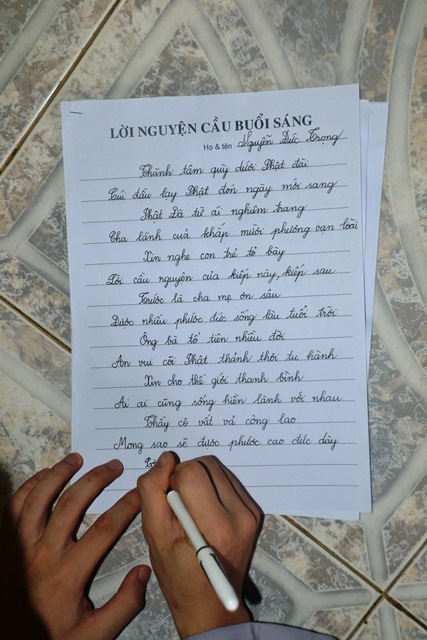 LỜI NGUYỆN CẦU BUỔI SÁNG
Họ & tên Nguyễn Đức Trọng
Thành tâm quỳ dưới Phật đài
Cúi đầu lạy Phật đón ngày mới sang
Phật Đà từ ái nghiêm trang
Cha lành của khắp mười phương vạn loài
Xin nghe con trẻ tỏ bày
Lời cầu nguyện của kiếp này, kiếp sau
Trước là cha mẹ ơn sâu
Được nhiều phước đức sống lâu tuổi trời
Ông bà tổ tiên nhiều đời
An vui cõi Phật thảnh thơi tu hành
Xin cho thế giới thanh bình
Ai ai cũng sống hiền lành với nhau
Thầy cô vất vả công lao
Mong sao sẽ được phước cao đức dày